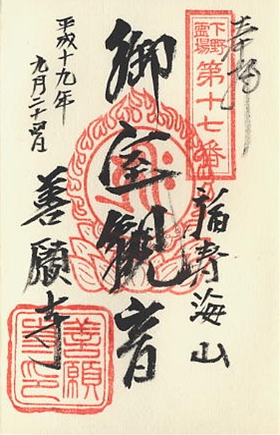 奉拝
下野
霊場
第十七番
福寿海山
御室観音
平成十九年
九月二十四日
善願寺
善願
寺印